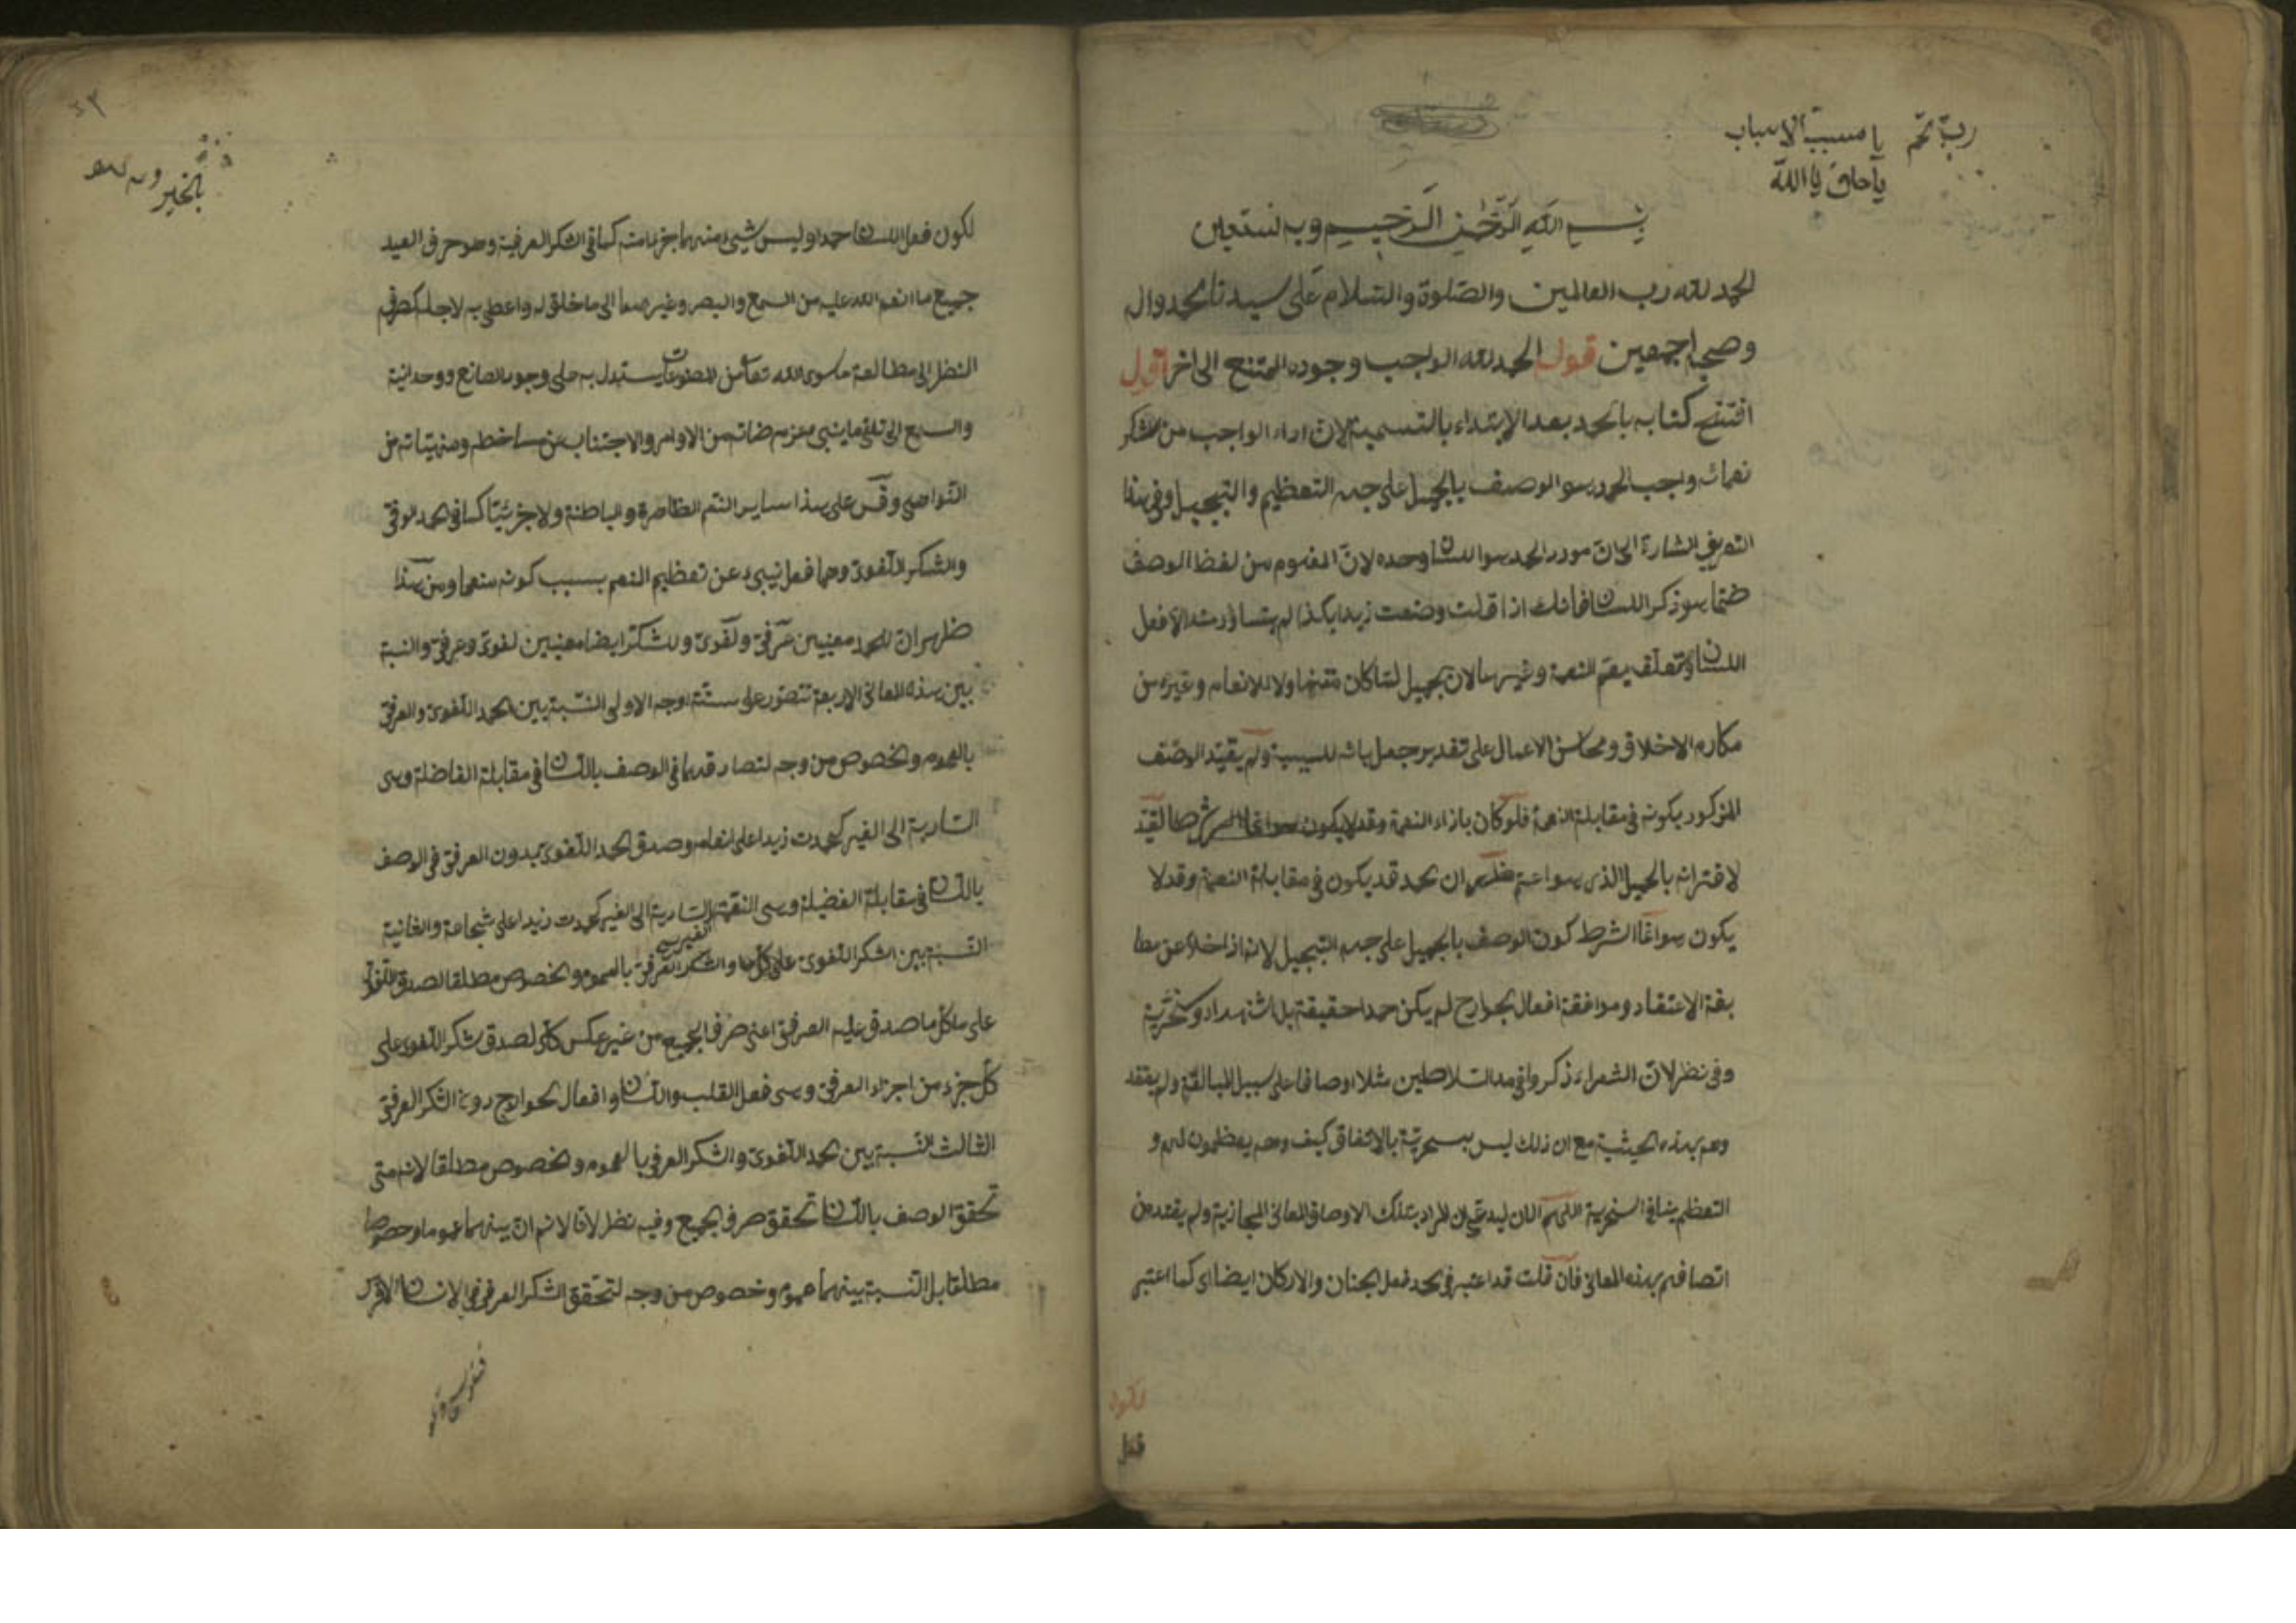 رب تمم
يا مسبب الاسباب
بسم الله الرحمن الرحيم وبه نستعين
الحمد لله رب العالمين والصلوة والسلام على سيدنا محمد وال
وصحبه اجمعين قوله الحمد لله الواجب وجوده الممتنع الى اخر اقول
افتتح كتابه بالحمد بعد الابتداء بالتسمية لان اداء الواجب من شكر
نعمائه واجب الحمد هو الوصف بالجميل على جهة التعظيم والتبجيل وفي هذا
التعريف اشارة الى ان مورد الحمد هو اللسان وحده لان المفهوم من لفظ الوصف
ههنا هو ذكر اللسان فانك اذا قلت وصفت زيدا بكذا لم يتبادر منه الا فعل
اللسان ومتعلقه يعم النعمة وغيرها لان الجميل لما كان متناولا للانعام وغيره من
مكارم الاخلاق ومحاسن الاعمال على تقدير جعل بائه للسببية ولم يقيد الوصف
المذكور بكونه في مقابلة النعمة فلو كان بازاء النعمة وقد لا يكون
لاقترانه بالجميل الذي هو اعم ظهر ان الحمد قد يكون في مقابلة النعمة وقد لا
يكون هو انما الشرط كون الوصف بالجميل على جهة التبجيل لانه اذا خلا عن مطا
بقة الاعتقاد وموافقة افعال الجوارح لم يكن حمدا حقيقة بل استهزاء وسخرية
وفي نظر لان الشعراء ذكروا في مدح السلاطين مثلا اوصافا على سبيل المبالغة ولم يعتقد
وهم بهذه الحيثية مع ان ذلك ليس بسخرية بالاتفاق كيف وهم يعظمون لهم و
التعظيم ينافي السخرية اللهم الا ان يدعي ان المراد بتلك الاوصاف المعاني المجازية ولم يعتقد من
اتصافهم بهذه المعاني فان قلت قد اعتبر في الحمد فعل الجنان والاركان ايضا اي كما اعتبر
فعل
بالخير
لكون فعل اللسان حمدا وليس شيئ منهما جزء منه كما في الشكر العرفية وهو صرف العبد
جميع ما انعم الله عليه من السمع والبصر وغيرهما الى ما خلق له واعطى به لاجله كصرف
النظر الى مطالعة ما سوى الله تعالى من المصنوعات يستدل به على وجود الصانع ووحدانية
والسمع الى تلقي ما ينبئ عن مرضاته من الاوامر والاجتناب عن مساخطه ومنهياته من
النواهي وقس على هذا ساير النعم الظاهرة والباطنة ولا جزئيا كما في الحمد العرفي
والشكر اللغوي وهما فعل ينبئ عن تعظيم المنعم بسبب كونه منعما ومن هذا
ظهر ان للحمد معنيين عرفي ولغوي وللشكر ايضا معنيين لغوي وعرفي والنسبة
بين هذه المعاني الاربعة تتصور على ستة اوجه الاولى النسبة بين الحمد اللغوي والعرفي
بالعموم والخصوص من وجه لتصادقهما في الوصف باللسان في مقابلة الفاضلة وهي
السارية الى الغير كحمدت زيدا على انعامه وصدق الحمد اللغوي بدون العرفي في الوصف
باللسان في مقابلة الفضيلة وهي النعمة الغير السارية الى الغير كحمدت زيدا على شجاعة والثانية
النسبة بين الشكر اللغوي والشكر العرفي بالعموم والخصوص مطلقا لصدق اللغوي
على كل ما صدق عليه العرفي اعني صرف الجميع من غير عكس كلي لصدق شكر اللغوي على
كل جزء من اجزاء العرفي وهي فعل القلب واللسان وافعال الجوارح دون الشكر العرفي
الثالث النسبة بين الحمد اللغوي والشكر العرفي بالعموم والخصوص مطلقا لانه متى
تحقق الوصف باللسان تحقق صرف الجميع وفيه نظر لانا لا نم ان بينهما عموما وخصوصا
مطلقا بل النسبة بينهما عموم وخصوص من وجه لتحقق الشكر العرفي في الانسان الاخرس